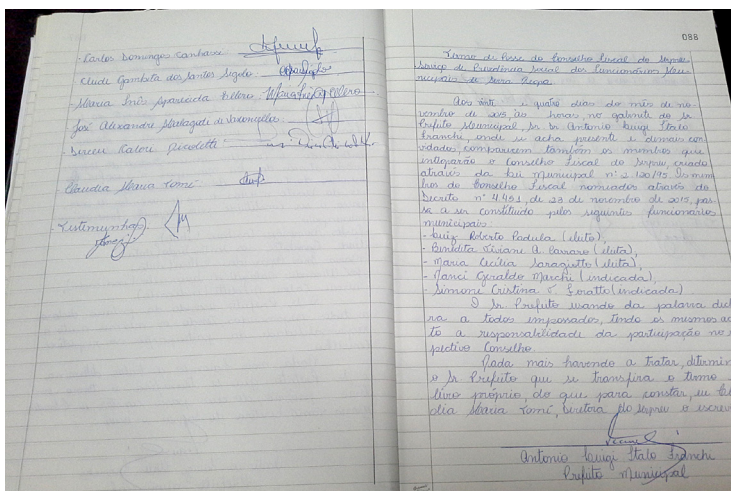 - Carlos Domingos Canhassi
Cleide Gambeta dos Santos
Maria Inês Aparecida
José Alexandre
- Dirceu
Claudia Maria Tomé
- Testemunhas
088
Termo de Posse do Conselho Fiscal do Serprev
Serviço de Previdência Social dos Funcionários Mu
nicipais de Serra Negra.
Aos vinte e quatro dias do mês de no-
vembro de 2015, às horas, no gabinete do Sr
Prefeito Municipal, Sr. Dr. Antonio Luigi Italo
Franchi, onde se acha presente e demais con
vidados, comparecem também os membros que
integrarão o Conselho Fiscal do Serprev, criado
através da Lei Municipal nº 2.120/95. Os mem
bros do Conselho Fiscal nomeados através do
Decreto nº 4.451, de 23 de novembro de 2015, pas
sa a ser constituído pelos seguintes funcionários
municipais:
- Luiz Roberto Padula (eleito),
- Benedita Viviani A. Carraro (eleita),
- Maria Cecília Saragiotto (eleita),
- Nanci Geraldo Marchi (indicada),
- Simone Cristina Loratto (indicada).
O Sr Prefeito usando da palavra decla
ra a todos empossados, tendo os mesmos ac
to a responsabilidade da participação no
pectivo Conselho.
Nada mais havendo a tratar, determin
o Sr Prefeito que se transfira o termo
livro próprio, do que para constar, eu Clau
dia Maria Tomé, Diretora do Serprev o escrev
Antonio Luigi Italo Franchi
Prefeito Municipal